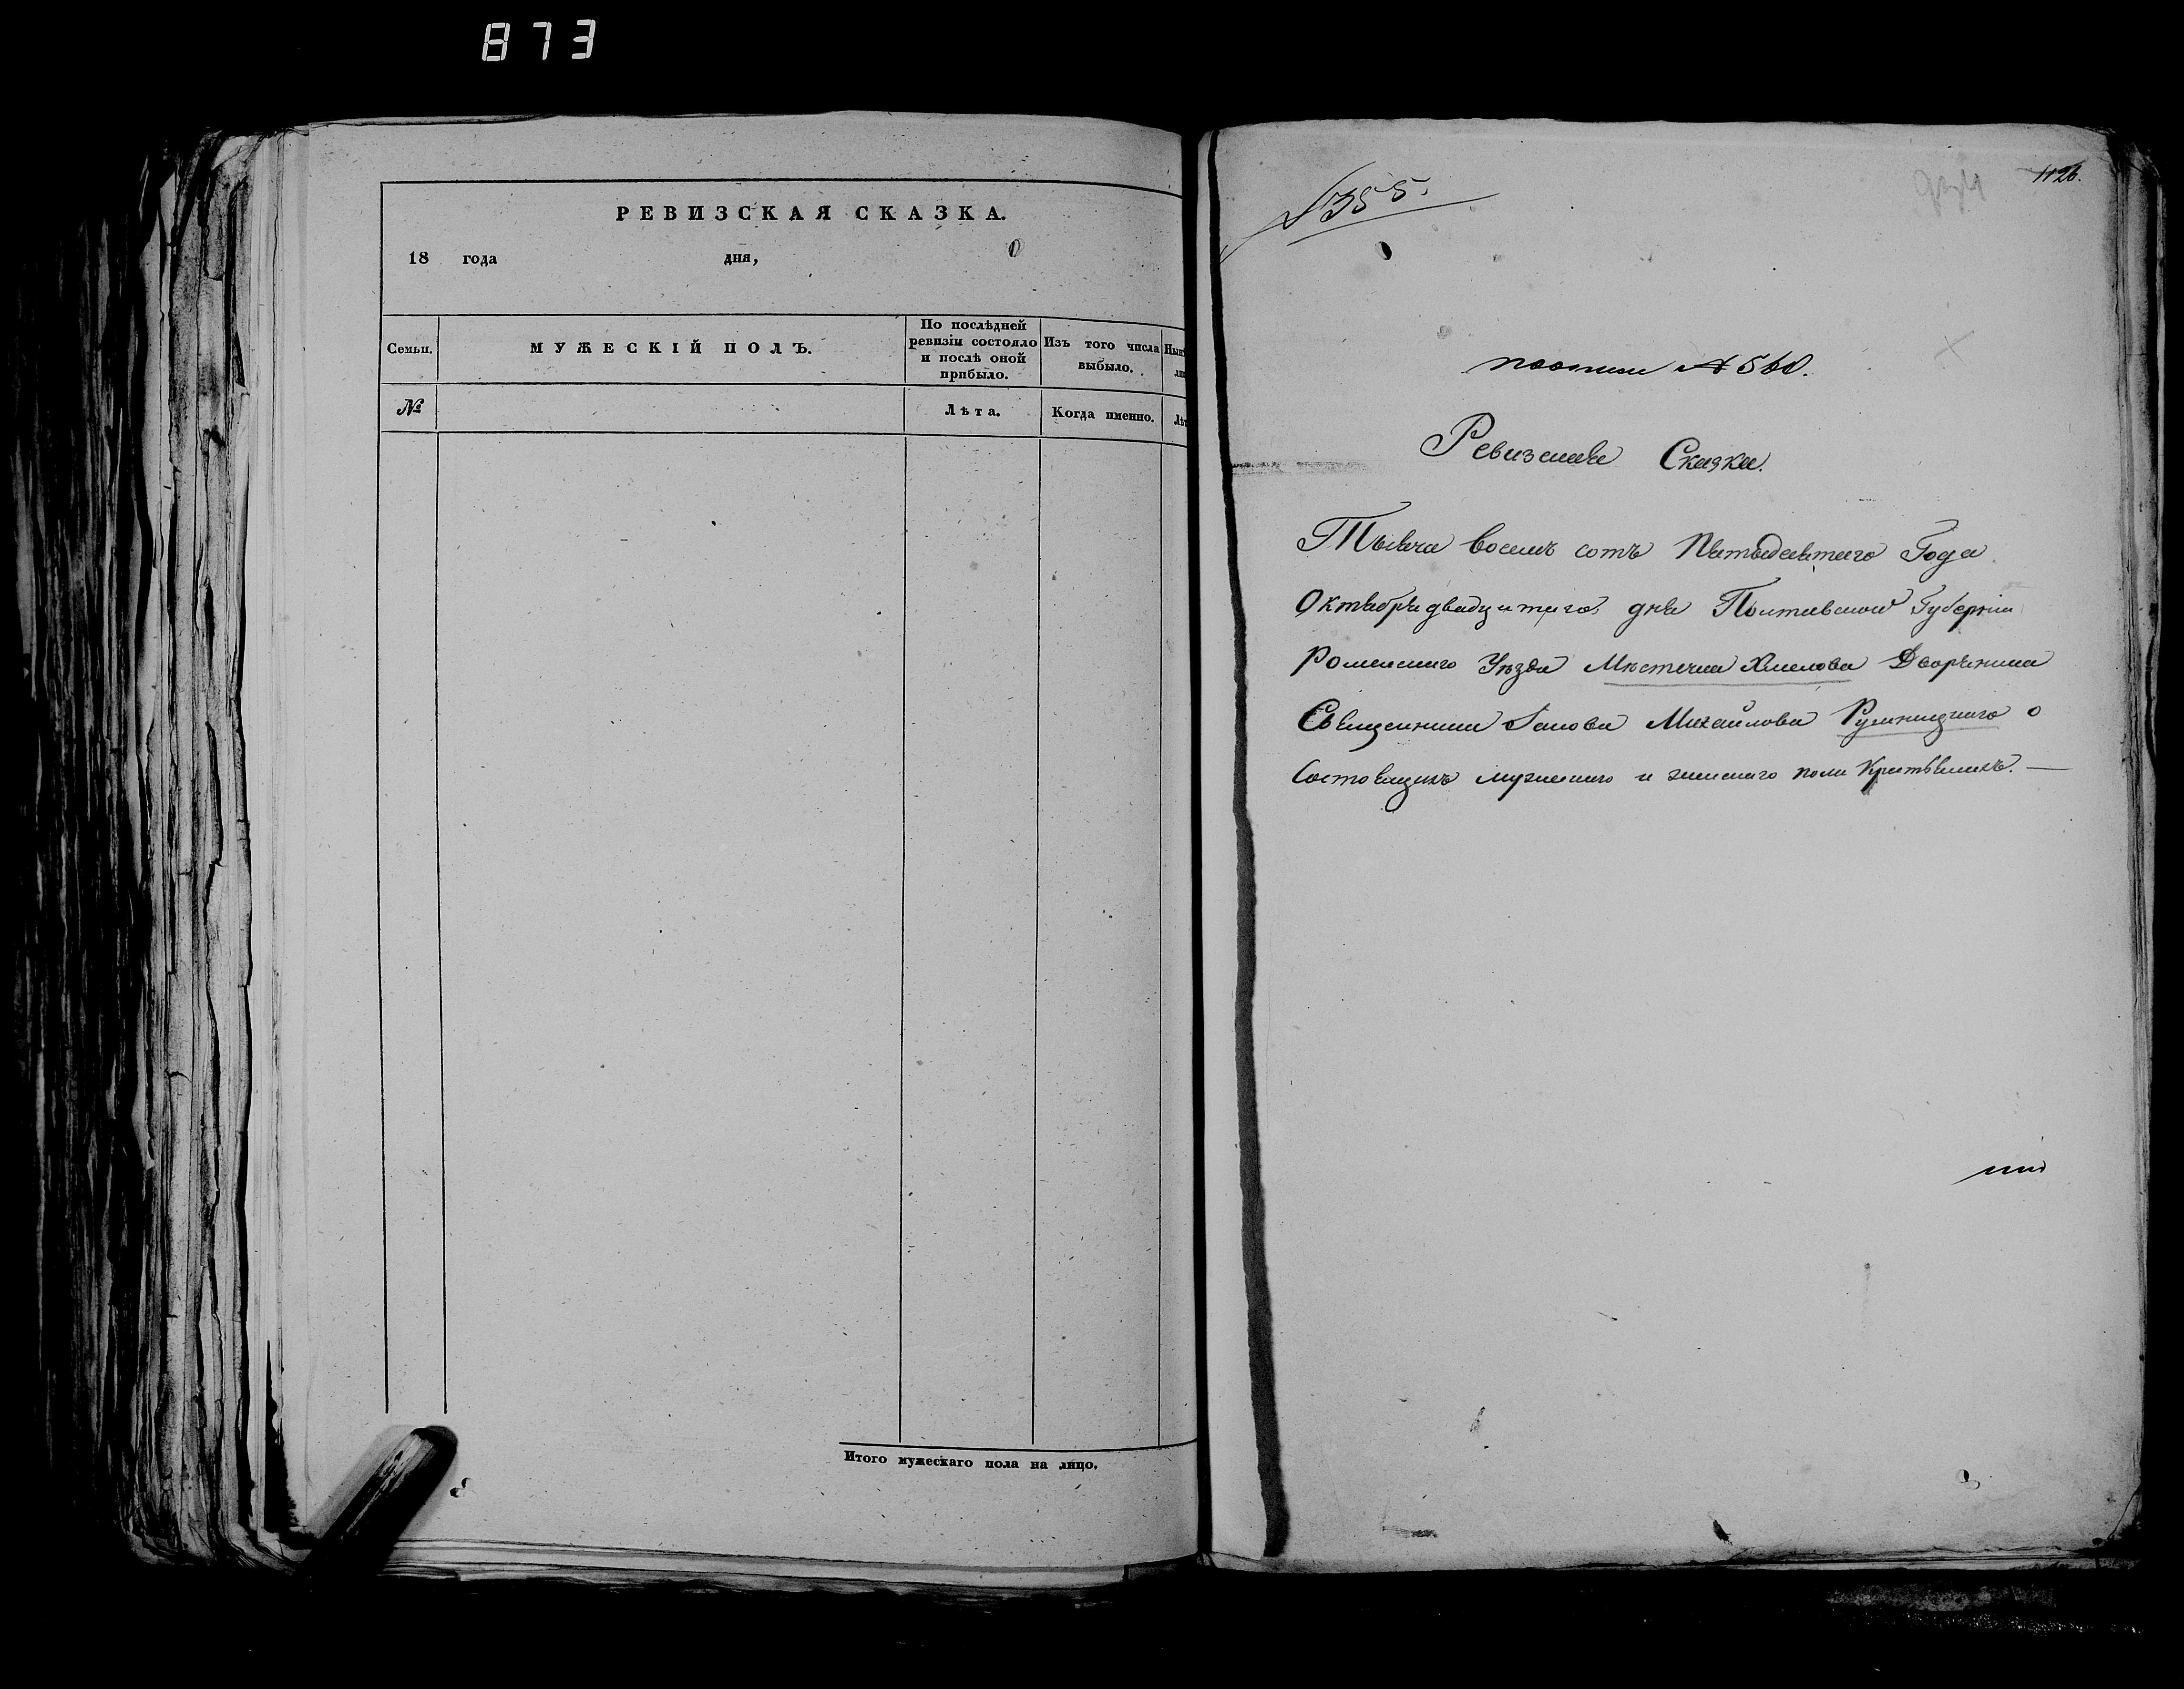 873
РЕВИЗСКАЯ СКАЗКА.
18 года дня,
Семьи.
МУЖЕСКІЙ ПОЛЪ.
По послѣдней ревизіи состояло и послѣ оной прибыло.
Изъ того числа выбыло.
№
Лѣта.
Когда именно.
Итого мужескаго пола на лицо.
1126.
№ 560.
Ревизская Сказка.
Тысяча восемь сотъ Пятьдесятаго Года
Октября двадцятаго дня Полтавской Губерніи
Роменскаго Уѣзда Мѣстечка Хмелова Дворянина
Священника Михайлова о
Состоящихъ мужескаго и женскаго пола Крестьянахъ.